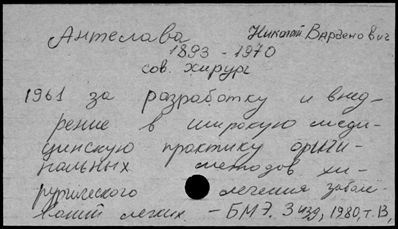 Антелава Николай Варденович
1893 - 1970
сов. хирург
1961 за разработку и внед-
рение в широкую меди-
цинскую практику ориги-
нальных методов хи-
рургического лечения забол
легких. - БМЭ. 3 изд, 1980, т. В,